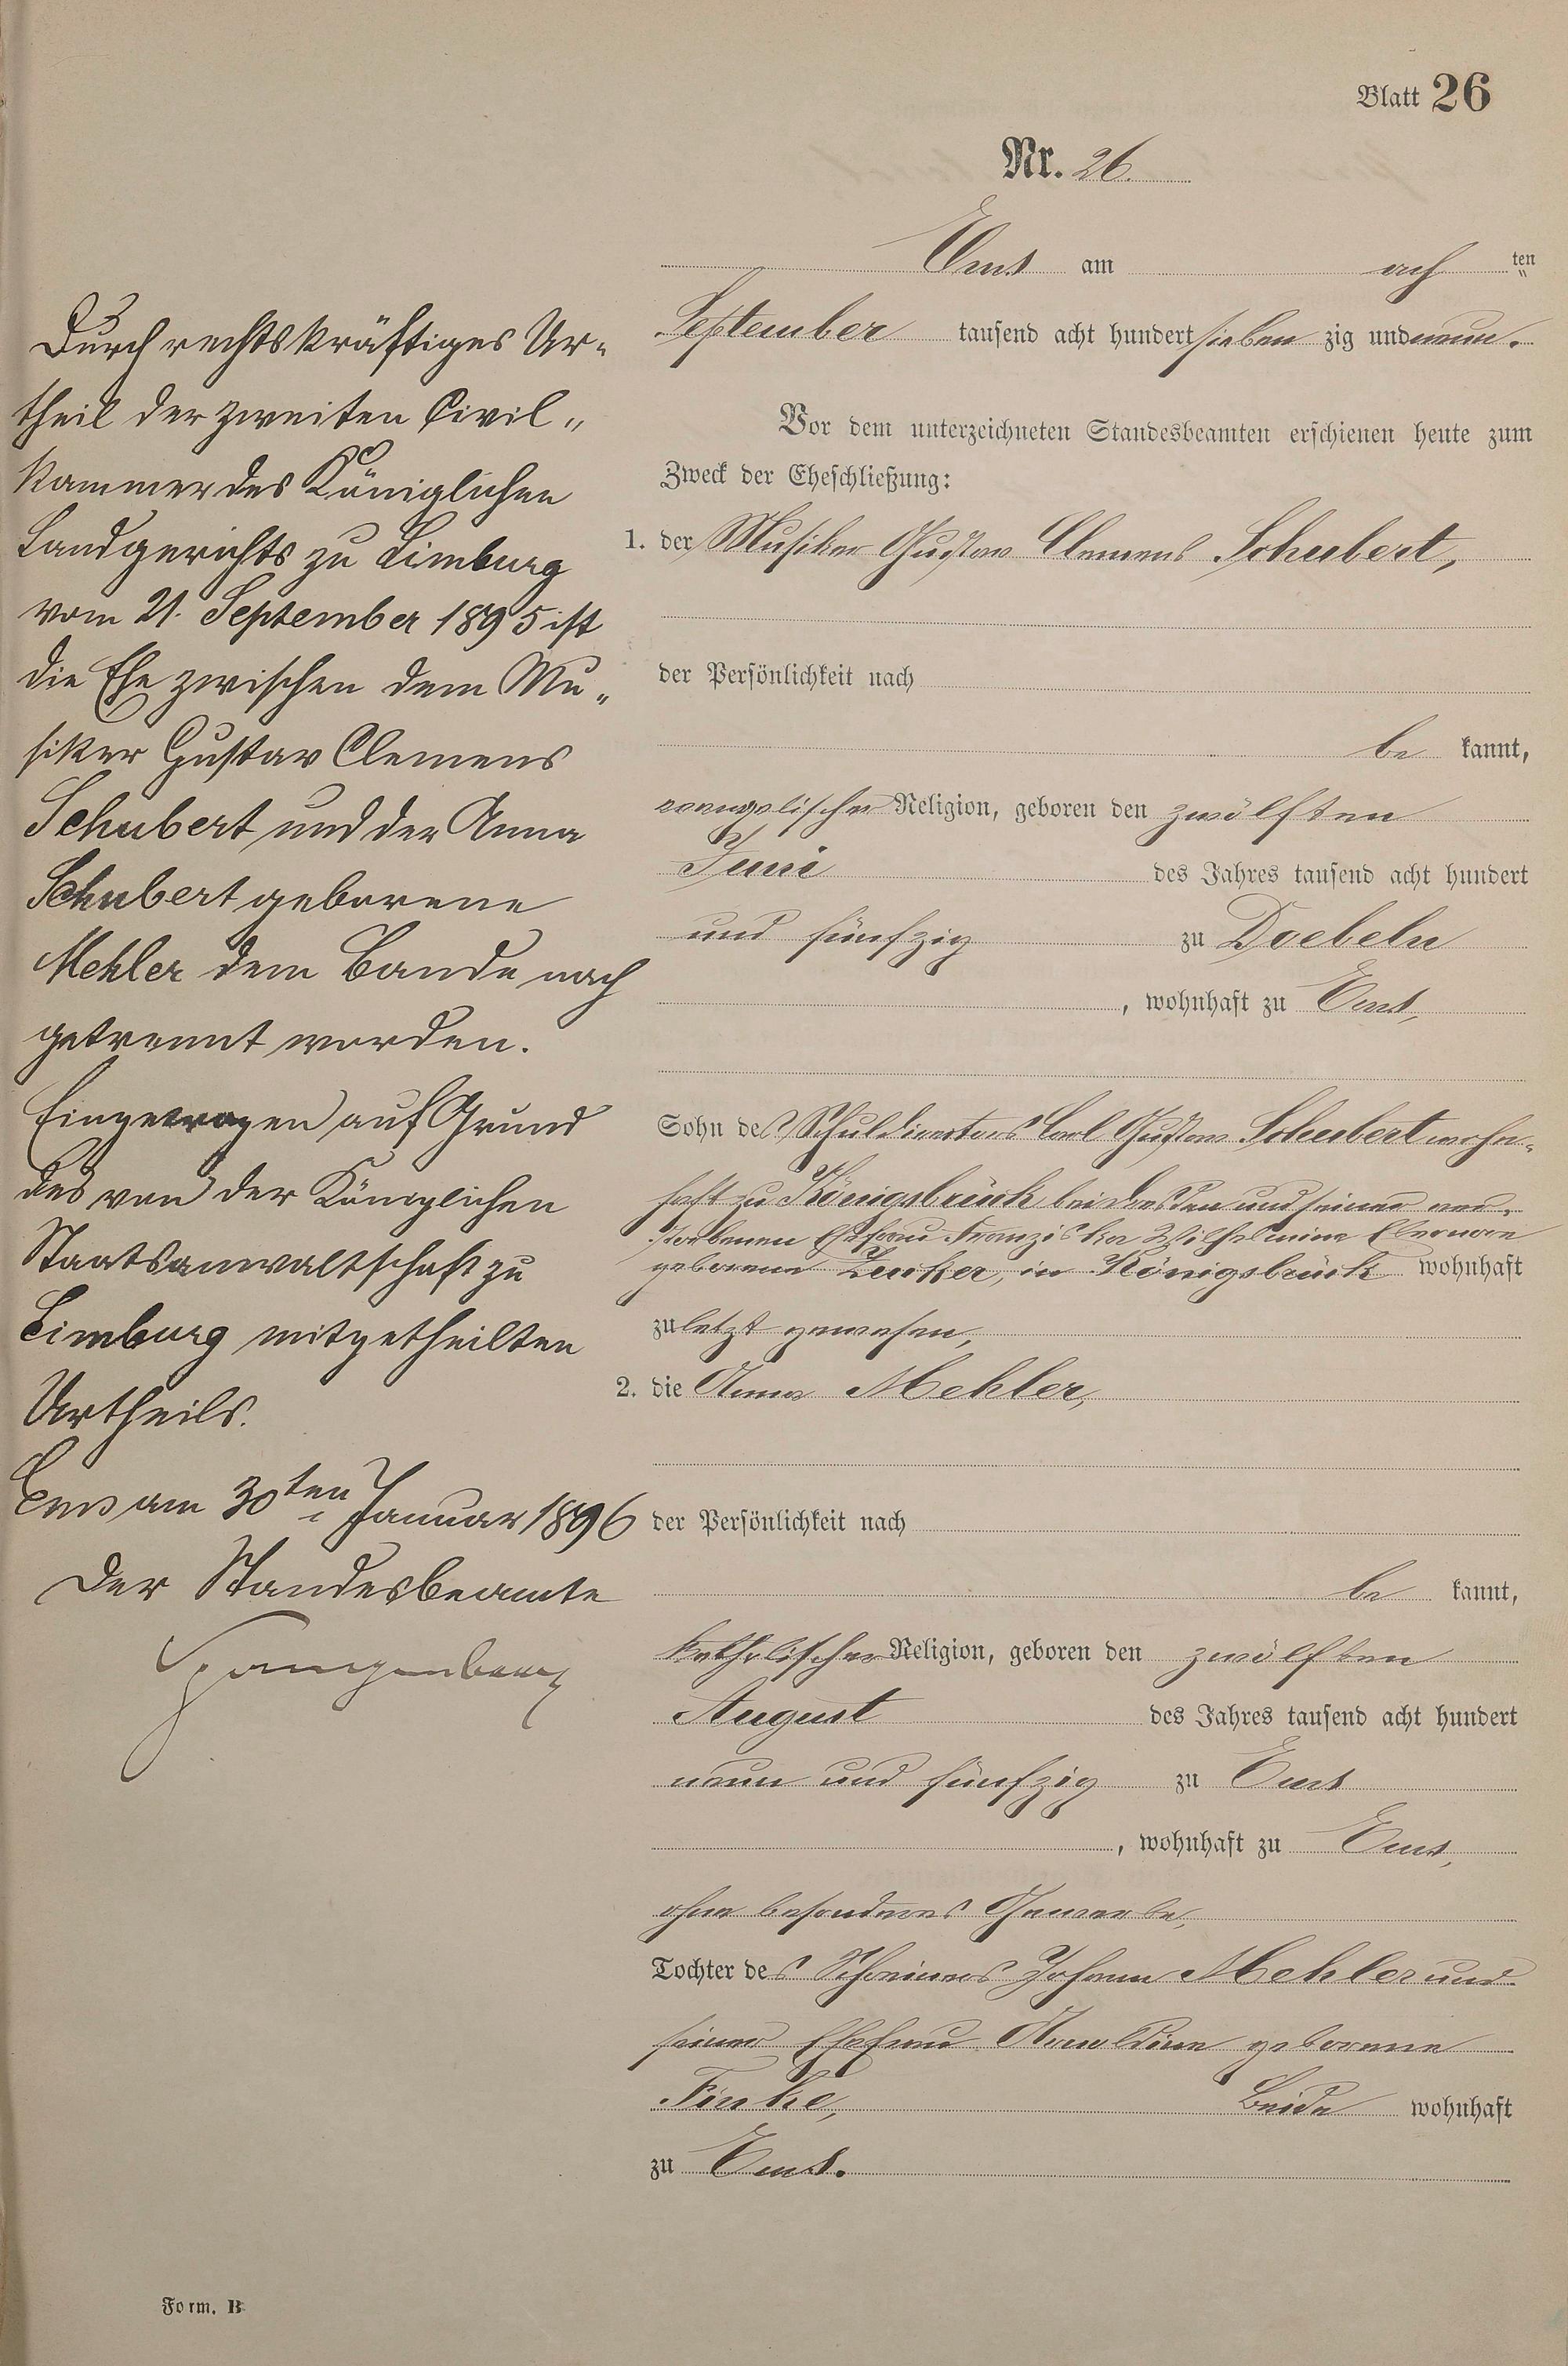 Blatt 26
Nr. 26.
Ems am ach ten
September tausend acht hundert sieben zig und neun.
Vor dem unterzeichneten Standesbeamten erschienen heute zum
Zweck der Eheschließung:
1. der Musiker Gustav Clemens Schubert,
der Persönlichkeit nach
be kannt,
evangelischer Religion, geboren den zwölften
Juni des Jahres tausend acht hundert
und fünfzig zu Doebeln
, wohnhaft zu Ems,
Sohn des Schuldirectors Carl Gustav Schubert wohn-
haft zu Königsbrück bei Dresden und seiner ver-
storbenen Ehefrau Franziska Wilhelmine Eleonore
geborene Zenker, in Königsbrück wohnhaft
zuletzt gewesen,
2. die Anna Mehler,
der Persönlichkeit nach
be kannt,
katholischer Religion, geboren den zwölften
August des Jahres tausend acht hundert
neun und fünfzig zu Ems
, wohnhaft zu Ems,
ohne besonderes Gewerbe,
Tochter des Schreiners Johann Mehler und
seiner Ehefrau Arnoldine geborene
Finke, Beide wohnhaft
zu Ems.
Durch rechtskräftiges Ur-
theil der zweiten Civil-
kammer des Königlichen
Landgerichts zu Limburg
vom 21. September 1895 ist
die Ehe zwischen dem Mu-
siker Gustav Clemens
Schubert und der Anna
Schubert geborene
Mehler dem Bande nach
getrennt worden.
Eingetragen auf Grund
des von der Königlichen
Staatsanwaltschaft zu
Limburg mitgetheilten
Urtheils.
Ems am 30ten Januar 1896
Der Standesbeamte
Spangenberg
Form. B